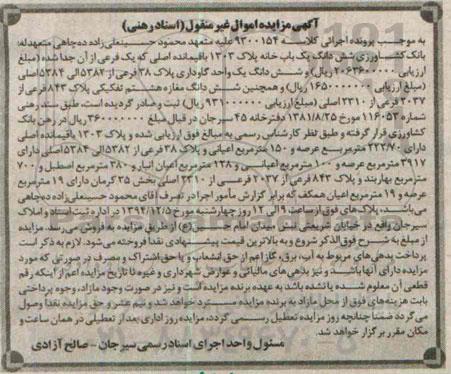 آگهی مزایده اموال غیر منقول (اسناد رهنی)
به موجب پرونده اجرائی کلاسه ۹۳۰۰۱۵۴ علیه متعهد محمود حسینعلی‌زاده ده‌چاهی متعهدله:
بانک کشاورزی شش دانگ یک باب خانه پلاک ۱۳۰۳ باقیمانده اصلی که یک فرعی از آن جدا شده (مبلغ
ارزیابی ۲۰۶۳۶۰۰۰۰ ریال) و شش دانگ یک واحد گاوداری پلاک ۳۸ فرعی از ۵۳۸۲ الی ۵۳۸۴ اصلی
(مبلغ ارزیابی ۱۶۵۰۰۰۰۰۰۰ ریال) و همچنین شش دانگ مغازه هشتم تفکیکی پلاک ۸۴۳ فرعی از
۲۰۳۷ فرعی از ۲۳۱۰ اصلی (مبلغ ارزیابی ۹۳۱۰۰۰۰۰۰ ریال) ثبت و صادر گردیده است، طبق سند رهنی
شماره ۱۱۶۰۵۳ مورخ ۱۳۸۱/۸/۲۵ دفترخانه ۴۵ سیرجان در قبال مبلغ ۳۶۰۰۰۰۰۰۰ ریال در رهن بانک
کشاورزی قرار گرفته و طبق نظر کارشناس رسمی به مبالغ فوق ارزیابی شده و پلاک ۱۳۰۳ باقیمانده اصلی
دارای ۲۲۲/۷۰ مترمربع عرصه و ۱۵۰ مترمربع اعیانی و پلاک ۳۸ فرعی از ۵۳۸۲ الی ۵۳۸۴ اصلی دارای
۳۹۱۷ مترمربع عرصه و ۱۰۰ مترمربع اعیانی و ۱۲۸ مترمربع اعیان انبار و ۳۸۰ مترمربع اصطبل و ۷۰۰
مترمربع بهاربند و پلاک ۸۴۳ فرعی از ۲۰۳۷ فرعی از ۲۳۱۰ اصلی بخش ۳۵ کرمان دارای ۱۹ مترمربع
عرصه و ۱۹ مترمربع اعیان همکف که برابر گزارش مأمور اجرا در تصرف آقای محمود حسینعلی‌زاده ده‌چاهی
می‌باشد، پلاک‌های فوق از ساعت ۹ الی ۱۲ روز چهارشنبه مورخ ۱۳۹۴/۱۲/۵ در اداره ثبت اسناد و املاک
سیرجان واقع در خیابان شریعتی نبش میدان امام حسین(ع) از طریق مزایده به فروش می‌رسد. مزایده
از مبلغ به شرح فوق‌الذکر شروع و به بالاترین قیمت پیشنهادی نقداً فروخته می‌شود. لازم به ذکر است
پرداخت بدهی‌های مربوط به آب، برق، گاز اعم از حق انشعاب و یا حق اشتراک و مصرف در صورتی که مورد
مزایده دارای آنها باشد و نیز بدهی های مالیاتی و عوارض شهرداری و غیره تا تاریخ مزایده اعم از اینکه رقم
قطعی آن معلوم شده یا نشده باشد به عهده برنده مزایده است و نیز در صورت وجود مازاد، وجوه پرداختی
بابت هزینه‌های فوق از محل مازاد به برنده مزایده مسترد خواهد شد و نیم عشر و حق مزایده نقداً وصول
می‌گردد ضمناً چنانچه روز مزایده تعطیل رسمی گردد، مزایده روز اداری بعد از تعطیلی در همان ساعت و
مکان مقرر برگزار خواهد شد.
مسئول واحد اجرای اسناد رسمی سیرجان - صالح آزادی